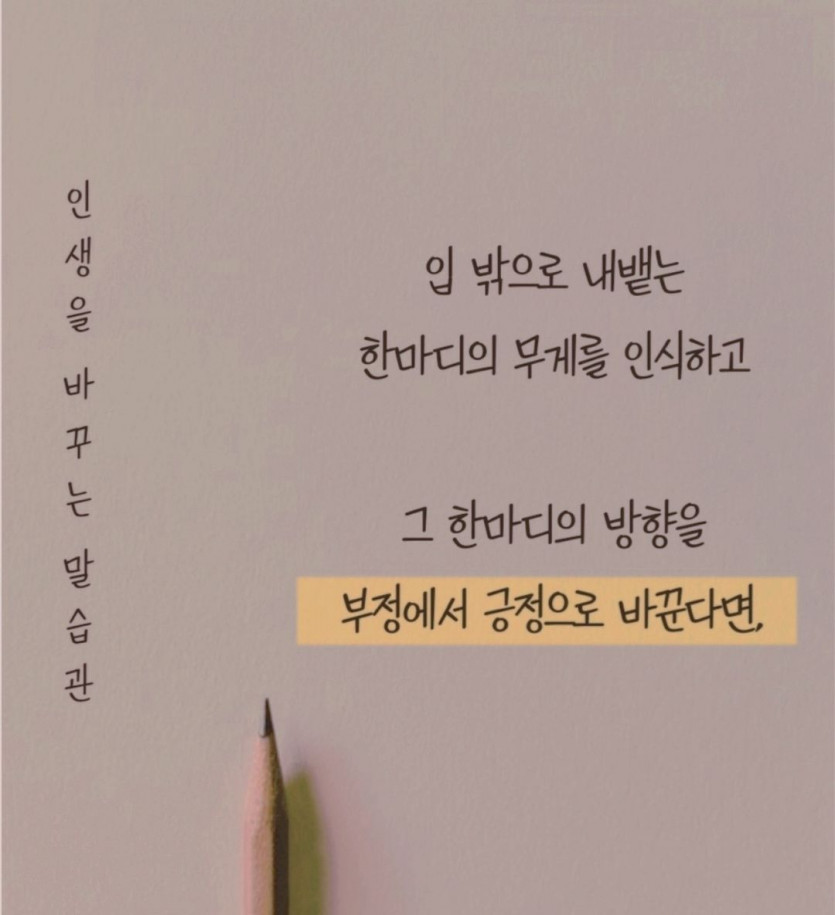 인생을 바꾸는 말습관
입 밖으로 내뱉는
한마디의 무게를 인식하고
그 한마디의 방향을
부정에서 긍정으로 바꾼다면,